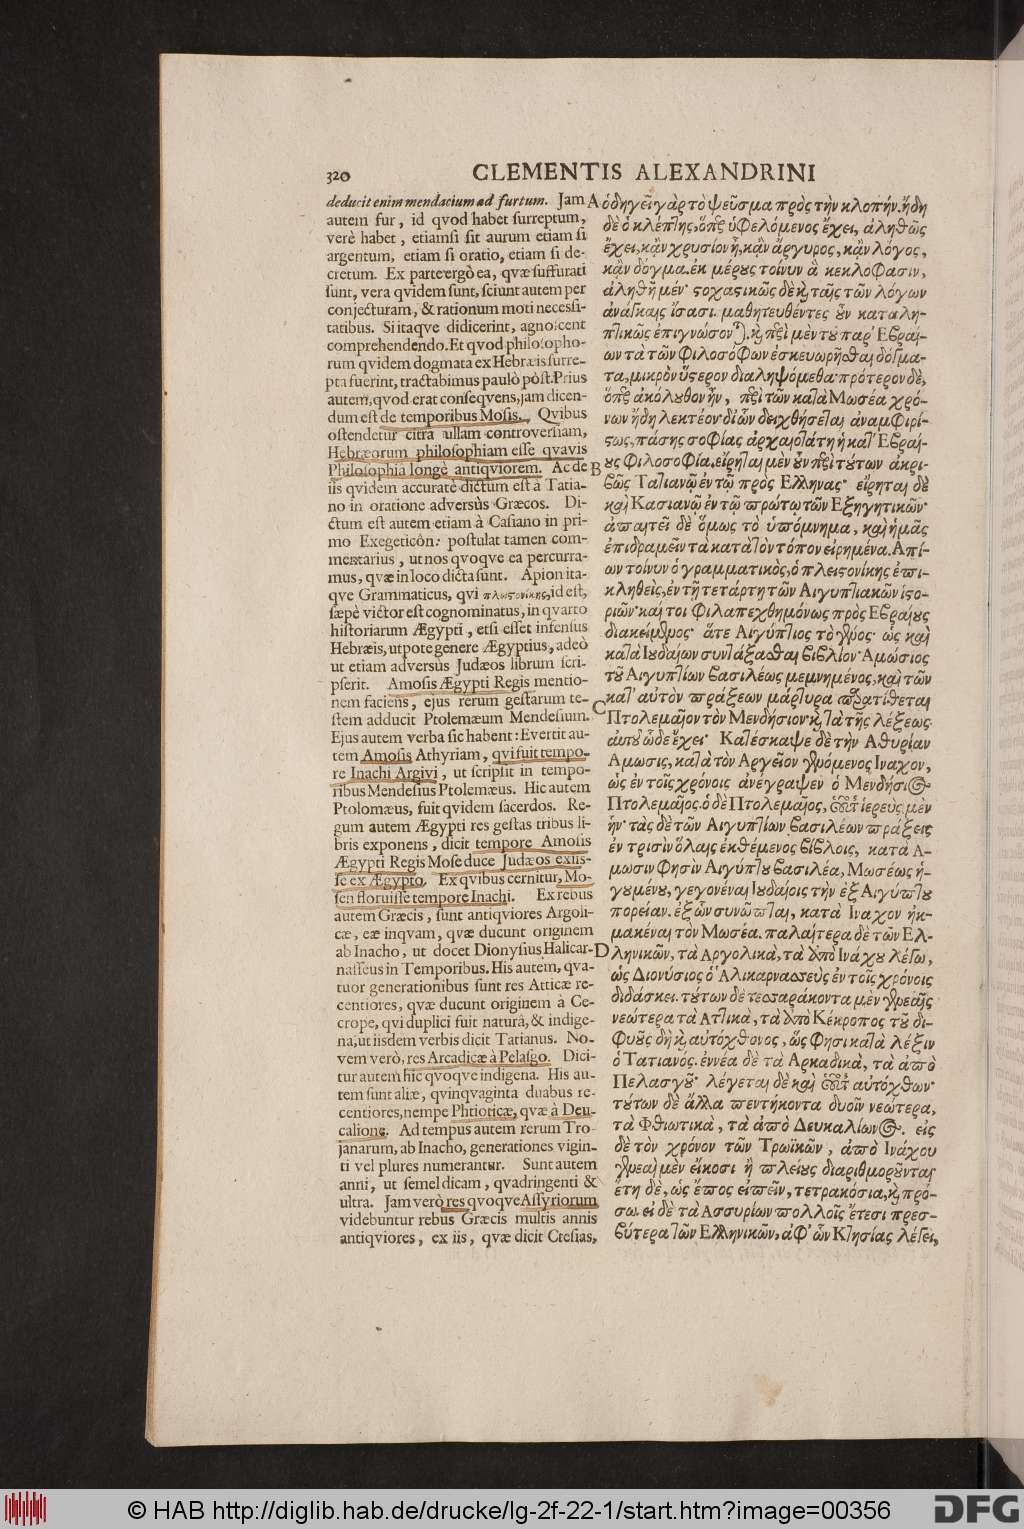 320
CLEMENTIS ALEXANDRINI
deducit enim mendacium ad furtum. Jam
autem fur, id qvod habet surreptum,
verè habet, etiamsi sit aurum etiam si
argentum, etiam si oratio, etiam si de-
cretum. Ex parte ergò ea, qvæ suffurati
sunt, vera qvidem sunt, sciunt autem per
conjecturam, & rationum moti necessi-
tatibus. Si itaqve didicerint, agnoscent
comprehendendo. Et qvod philosopho-
rum qvidem dogmata ex Hebræis surre-
pta fuerint, tractabimus paulò pòst. Prius
autem, qvod erat conseqvens, jam dicen-
dum est de temporibus Mosis. Qvibus
ostendetur citra ullam controversiam,
Hebræorum philosophiam esse qvavis
Philosophiâ longè antiqviorem. Ac de
iis qvidem accuratè dictum est à Tatia-
no in oratione adversùs Græcos. Di-
ctum est autem etiam à Casiano in pri-
mo Exegeticôn: postulat tamen com-
mentarius, ut nos qvoqve ea percurra-
mus, qvæ in loco dicta sunt. Apion ita-
qve Grammaticus, qvi πλειστονίκης, id est,
sæpè victor est cognominatus, in qvarto
historiarum Ægypti, etsi esset infensus
Hebræis, utpote genere Ægyptius, adeò
ut etiam adversus Judæos librum scri-
pserit. Amosis Ægypti Regis mentio-
nem faciens, ejus rerum gestarum te-
stem adducit Ptolemæum Mendesium.
Ejus autem verba sic habent: Evertit au-
tem Amosis Athyriam, qvi fuit tempo-
re Inachi Argivi, ut scripsit in tempo-
ribus Mendesius Ptolemæus. Hic autem
Ptolomæus, fuit qvidem sacerdos. Re-
gum autem Ægypti res gestas tribus li-
bris exponens, dicit tempore Amosis
Ægypti Regis Mose duce Judæos exiis-
se ex Ægypto. Ex qvibus cernitur, Mo-
sen floruisse tempore Inachi. Ex rebus
autem Græcis, sunt antiqviores Argoli-
cæ, eæ inqvam, qvæ ducunt originem
ab Inacho, ut docet Dionysius Halicar-
nasseus in Temporibus. His autem, qva-
tuor generationibus sunt res Atticæ re-
centiores, qvæ ducunt originem à Ce-
crope, qvi duplici fuit naturâ, & indige-
na, ut iisdem verbis dicit Tatianus. No-
vem verò, res Arcadicæ à Pelasgo. Dici-
tur autem hic qvoqve indigena. His au-
tem sunt aliæ, qvinqvaginta duabus re-
centiores, nempe Phtioticæ, qvæ à Deu-
calione. Ad tempus autem rerum Tro-
janarum, ab Inacho, generationes vigin-
ti vel plures numerantur. Sunt autem
anni, ut semel dicam, qvadringenti &
ultra. Jam verò res qvoqve Assyriorum
videbuntur rebus Græcis multis annis
antiqviores, ex iis, qvæ dicit Ctesias,
A
B
C
D
ὁδηγεῖ γὰρ τὸ ψεῦσμα πρὸς τὴν κλοπήν. ἤδη
δὲ ὁ κλέπτης, ὅπερ ὑφελόμενος ἔχει, ἀληθῶς
ἔχει, κᾂν χρυσίον ᾖ, κᾂν ἄργυρος, κᾂν λόγος,
κᾂν δόγμα. ἐκ μέρους τοίνυν ἃ κεκλόφασιν,
ἀληθῆ μέν· στοχαστικῶς δὲ καὶ ταῖς τῶν λόγων
ἀνάγκαις ἴσασι. μαθητευθέντες οὖν καταλη-
πτικῶς ἐπιγνώσον). καὶ περὶ μὲν τοῦ παρ' Ἑβραί-
ων τὰ τῶν φιλοσόφων ἐσκευωρῆσθαι δόγμα-
τα, μικρὸν ὕστερον διαληψόμεθα· πρότερον δὲ,
ὅπερ ἀκόλουθον ἦν, περὶ τῶν κατὰ Μωσέα χρό-
νων ἤδη λεκτέον· δι' ὧν δειχθήσεται ἀναμφιρί-
στως, πάσης σοφίας ἀρχαιοτάτη ἡ κατ' Ἑβραί-
ους φιλοσοφία. εἴρηται μὲν οὖν περὶ τούτων ἀκρι-
βῶς Τατιανῷ ἐν τῷ πρὸς Ἕλληνας· εἴρηται δὲ
καὶ Κασιανῷ ἐν τῷ πρώτῳ τῶν Ἐξηγητικῶν·
ἀπαιτεῖ δὲ ὅμως τὸ ὑπόμνημα, καὶ ἡμᾶς
ἐπιδραμεῖν τὰ κατὰ τὸν τόπον εἰρημένα. Ἀπί-
ων τοίνυν ὁ γραμματικὸς, ὁ πλειστονίκης ἐπι-
κληθεὶς, ἐν τῇ τετάρτῃ τῶν Αἰγυπτιακῶν ἱστο-
ριῶν· καί τοι φιλαπεχθημόνως πρὸς Ἑβραίους
διακείμενος· ἅτε Αἰγύπτιος τὸ γένος· ὡς καὶ
κατὰ Ἰουδαίων συντάξασθαι βιβλίον· Ἀμώσιος
τοῦ Αἰγυπτίων βασιλέως μεμνημένος, καὶ τῶν
κατ' αὐτὸν πράξεων μάρτυρα παρατίθεται
Πτολεμαῖον τὸν Μενδήσιον· καὶ τὰ τῆς λέξεως
αὐτοῦ ὧδε ἔχει· Κατέσκαψε δὲ τὴν Ἀθυρίαν
Ἄμωσις, κατὰ τὸν Ἀργεῖον γενόμενος Ἴναχον,
ὡς ἐν τοῖς χρόνοις ἀνέγραψεν ὁ Μενδήσιος
Πτολεμαῖος. ὁ δὲ Πτολεμαῖος, οὗτος ἱερεὺς μὲν
ἦν· τὰς δὲ τῶν Αἰγυπτίων βασιλέων πράξεις
ἐν τρισὶν ὅλαις ἐκθέμενος βίβλοις, κατὰ Ἄ-
μωσιν φησὶν Αἰγύπτου βασιλέα, Μωσέως ἡ-
γουμένου, γεγονέναι Ἰουδαίοις τὴν ἐξ Αἰγύπτου
πορείαν. ἐξ ὧν συνῶπται, κατὰ Ἴναχον ἠκ-
μακέναι τὸν Μωσέα. παλαίτερα δὲ τῶν Ἑλ-
ληνικῶν, τὰ Ἀργολικὰ, τὰ ἀπὸ Ἰνάχου λέγω,
ὡς Διονύσιος ὁ Ἁλικαρνασσεὺς ἐν τοῖς χρόνοις
διδάσκει. τούτων δὲ τεσσαράκοντα μὲν γενεαῖς
νεώτερα τὰ Ἀττικὰ, τὰ ἀπὸ Κέκροπος τοῦ δι-
φυοῦς δὴ καὶ αὐτόχθονος, ὥς φησι κατὰ λέξιν
ὁ Τατιανός. ἐννέα δὲ τὰ Ἀρκαδικὰ, τὰ ἀπὸ
Πελασγοῦ· λέγεται δὲ καὶ οὗτος αὐτόχθων·
τούτων δὲ ἄλλα πεντήκοντα δυοῖν νεώτερα,
τὰ Φθιωτικὰ, τὰ ἀπὸ Δευκαλίωνος. εἰς
δὲ τὸν χρόνον τῶν Τρωϊκῶν, ἀπὸ Ἰνάχου
γενεαὶ μὲν εἴκοσι ἢ πλείους διαριθμοροῦνται
ἔτη δὲ, ὡς ἔπος εἰπεῖν, τετρακόσια, καὶ πρό-
σω. εἰ δὲ τὰ Ἀσσυρίων πολλοῖς ἔτεσι πρεσ-
βύτερα τῶν Ἑλληνικῶν, ἀφ' ὧν Κτησίας λέγει,
© HAB http://diglib.hab.de/drucke/lg-2f-22-1/start.htm?image=00356
DFG